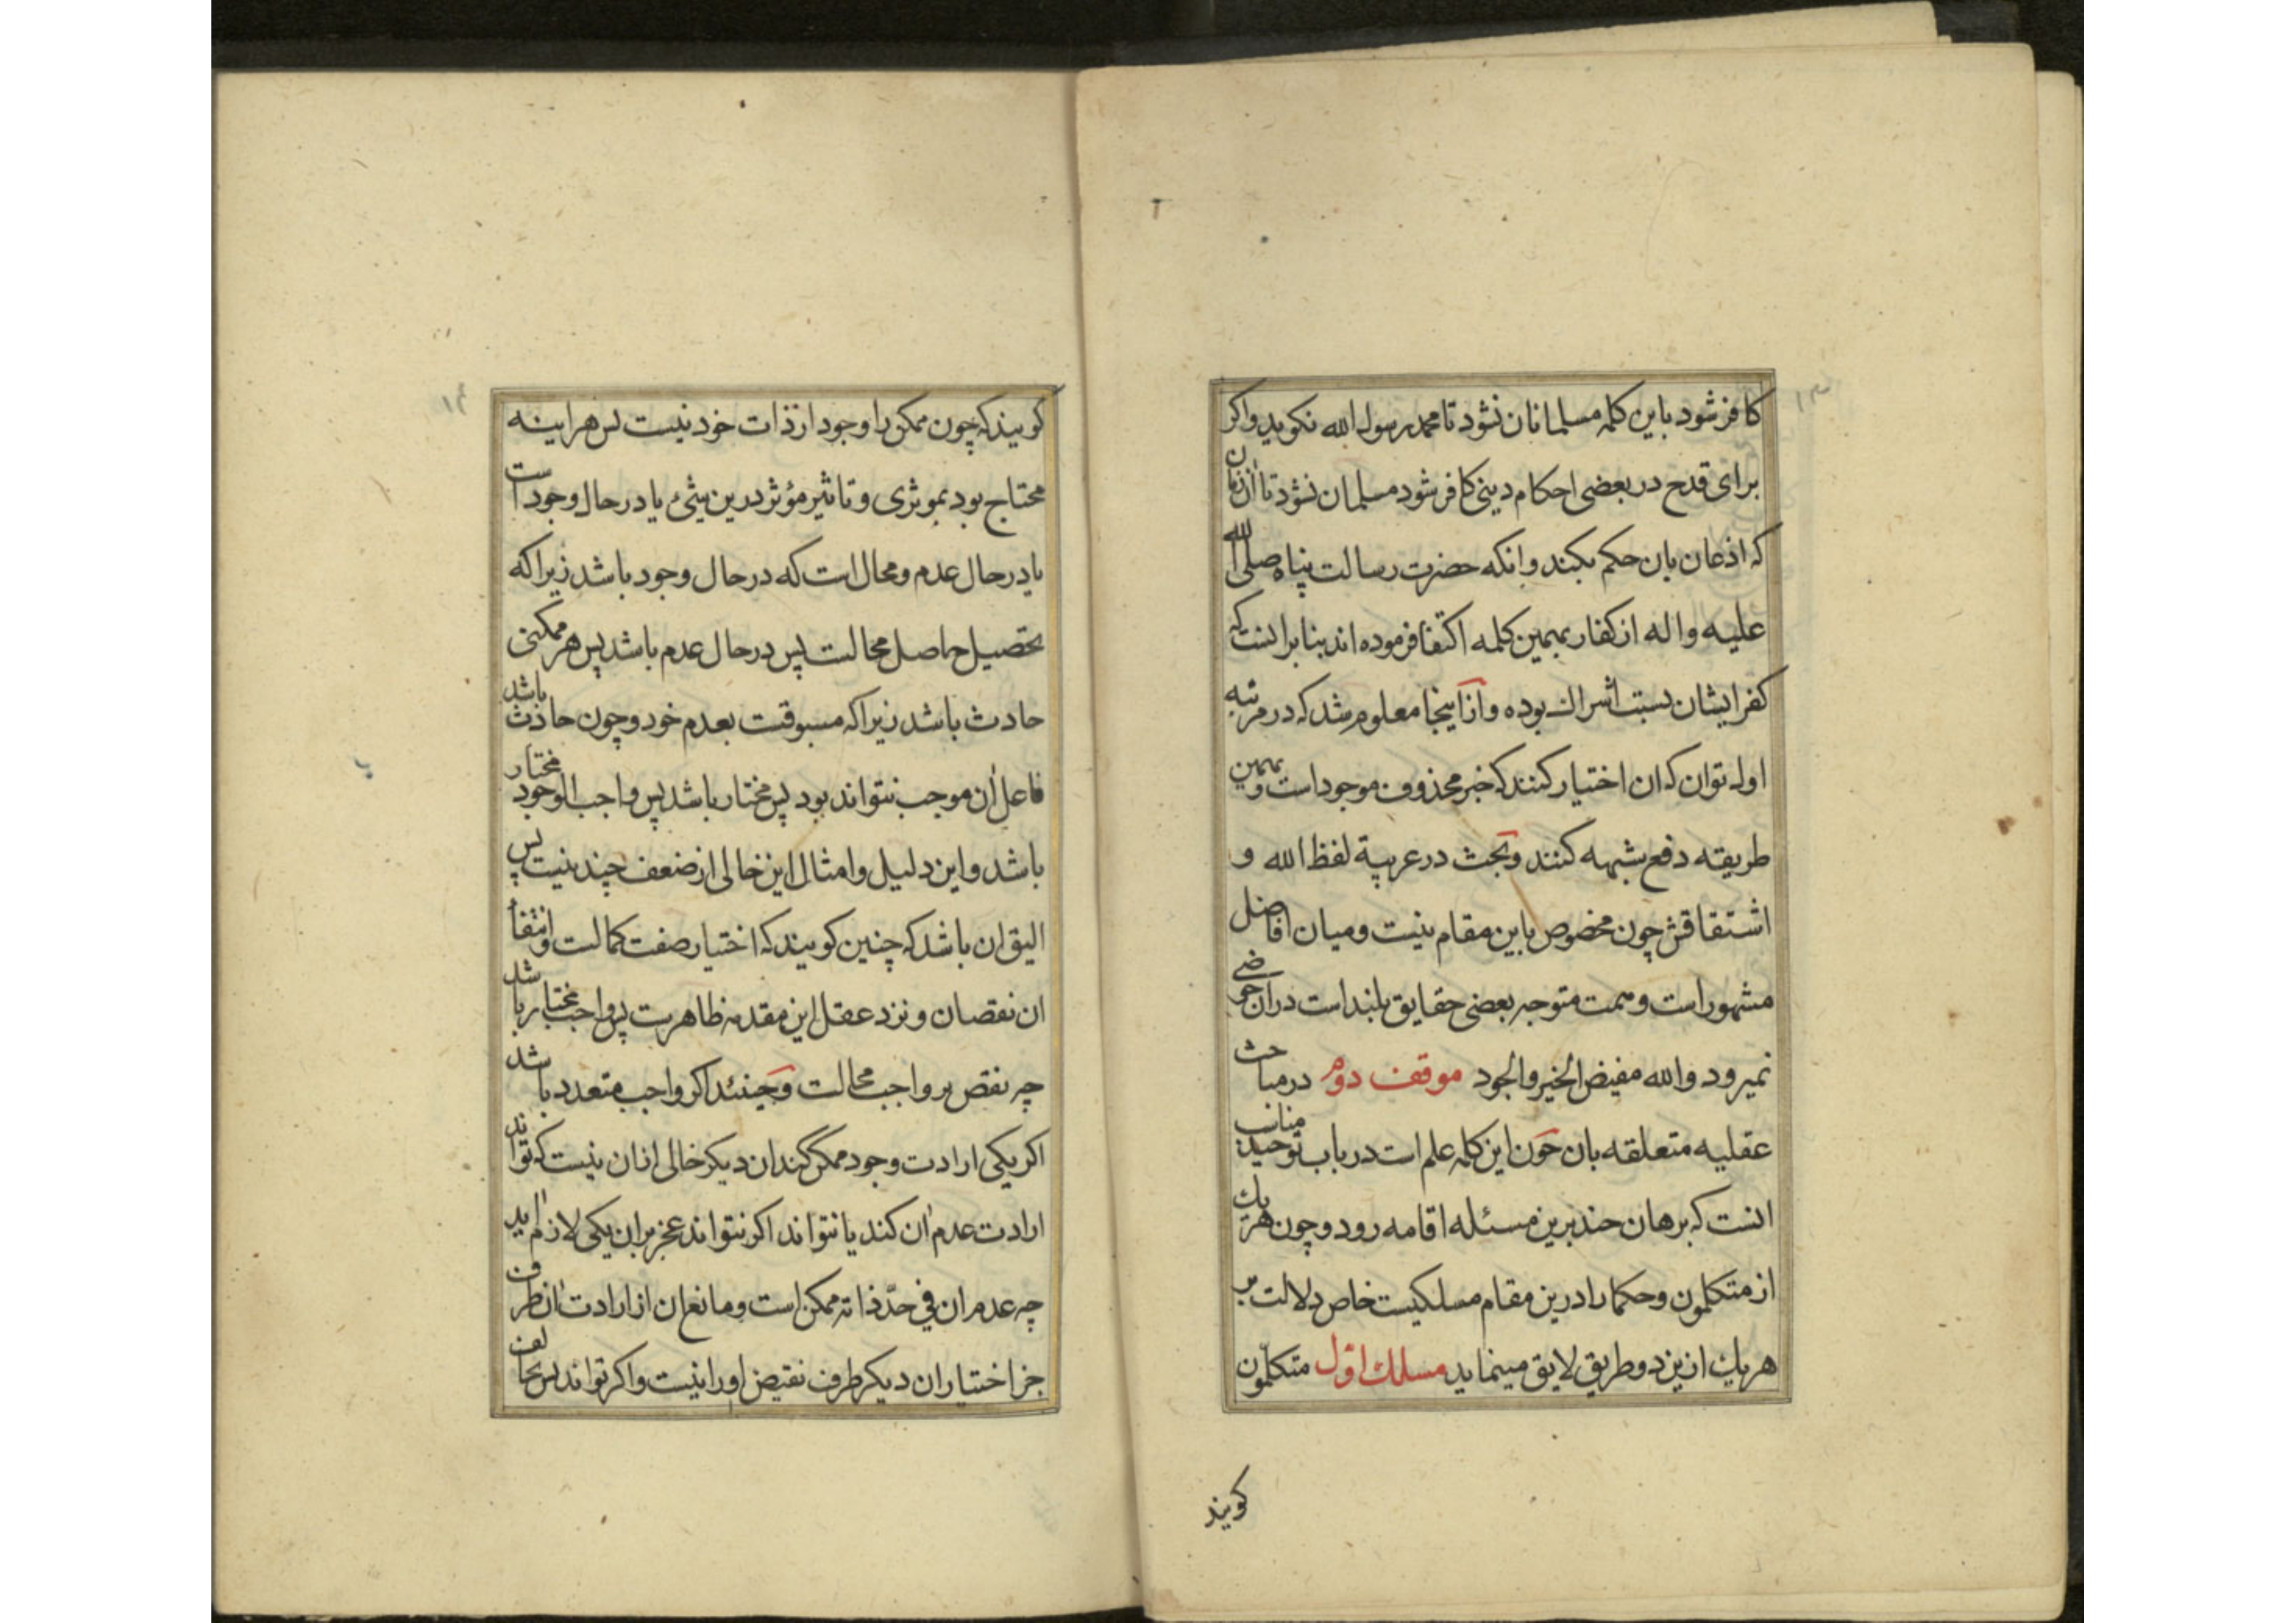 کافر شود باین کلمه مسلمانان نشود تا محمد رسول الله نکوید واکر
برای قدح در بعضی احکام دینی کافر شود مسلمان نشود تا آن زمان
که اذعان بان حکم بکند وانکه حضرت رسالت پناه صلی الله
علیه واله از کفار بهمین کلمه اکتفا فرموده اند بنا برانست که
کفر ایشان بسبب اشراک بوده و از اینجا معلوم شد که در مرتبه
اوله توان که ان اختیار کنند که خبر محذوف موجود است و بهمین
طریقه دفع شبهه کنند وبحث در عربیة لفظ الله و
اشتقاقش چون مخصوص باین مقام نیست ومیان افاضل
مشهور است وهمت متوجه بعضی حقایق بلند است دران خوضی
نمیرود والله مفیض الخیر والجود موقف دوم در مباحث
عقلیه متعلقه بان چون این کلمه علم است در باب توحید مناسب
انست که برهان چند برین مسئله اقامه رود وچون هر یک
از متکلمون وحکما را درین مقام مسلکیست خاص دلالت بر
هر یک ازین دو طریق لایق مینماید مسلک اوّل متکلّمون
کویند
۱۳
کویند که چون ممکن را وجود از ذات خود نیست پس هراینه
محتاج بود بموثری و تاثیر مؤثر درین شئ یا در حال وجود است
یا در حال عدم ومحال است که در حال وجود باشد زیرا که
تحصیل حاصل محالست پس در حال عدم باشد پس هر ممکنی
حادث باشد زیرا که مسبوقست بعدم خود وچون حادث باشد
فاعل آن موجب نتواند بود پس مختار باشد پس واجب الوجود مختار
باشد واین دلیل وامثال این خالی از ضعف چند نیست پس
الیق ان باشد که چنین کویند که اختیار صفت کمالست وانتفاء
ان نقصان ونزد عقل این مقدمه ظاهرست پس واجب مختار باشد
چه نقص بر واجب محالست وحینئذ اکر واجب متعدد باشد
اکر یکی ارادت وجود ممکن کند ان دیکر خالی ازان نیست که تواند
ارادت عدم آن کند یا نتواند اکر نتواند عجز بران یکی لازم آید
چه عدم ان في حدّ ذاته ممکن است ومانع ان از ارادت آن طرف
جز اختیار ان دیکر طرف نقیض اورا نیست واکر تواند پس تخالف
۱۴